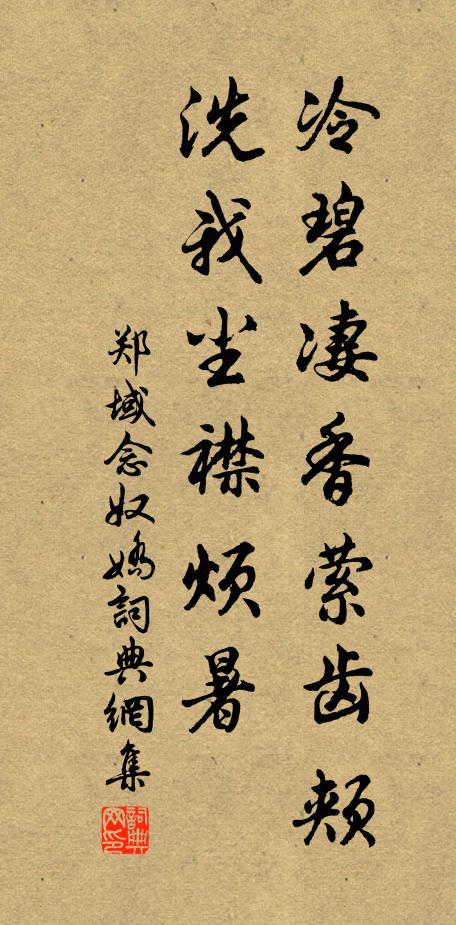 冷碧凄香萦齿颊
洗我尘襟烦暑
郑域念奴娇詞典網集
詞典网印